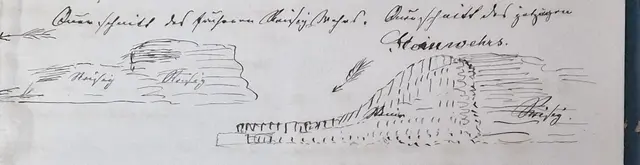 Querschnitt des früheren Reisig Wehrs. Querschnitt des jetzigen
Steinwehrs.
Reisig Reisig
Reisig.